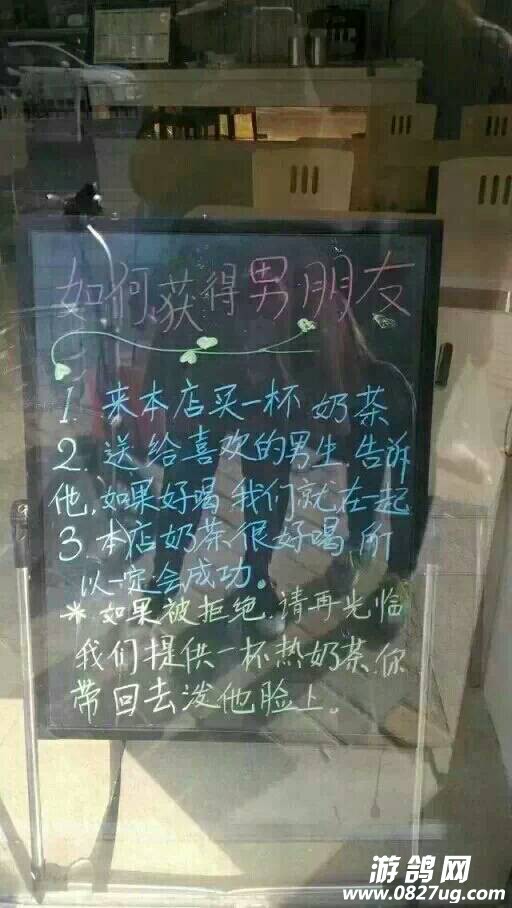 如何获得男朋友
1. 来本店买一杯奶茶
2. 送给喜欢的男生.告诉
他,如果好喝 我们就在一起
3.本店奶茶很好喝 所
以一定会成功。
* 如果被拒绝.请再光临
我们提供一杯热奶茶.你
带回去泼他脸上。
游鸽网
www.0827ug.com